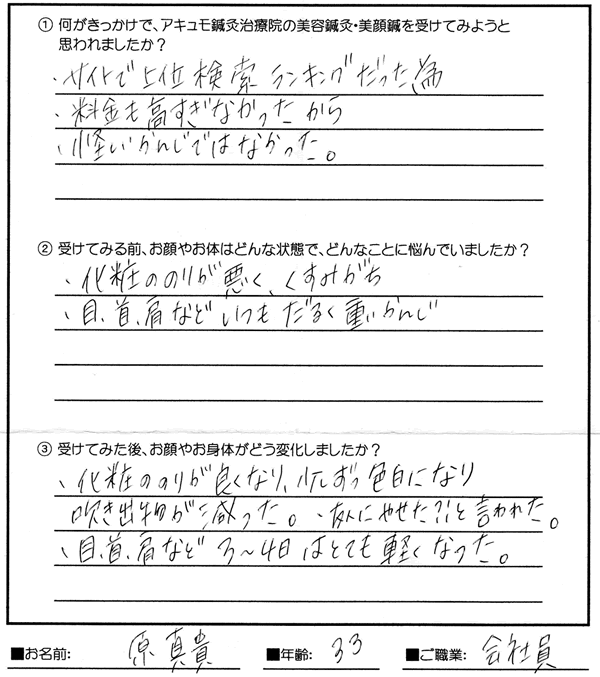 ① 何がきっかけで、アキュモ鍼灸治療院の美容鍼灸・美顔鍼を受けてみようと
思われましたか？
・サイトで上位検索ランキングだった為
・料金も高すぎなかったから
・怪しいかんじではなかった。
② 受けてみる前、お顔やお体はどんな状態で、どんなことに悩んでいましたか？
・化粧ののりが悪く、くすみがち
・目、首、肩など いつも だるく 重いかんじ
③ 受けてみた後、お顔やお身体がどう変化しましたか？
・化粧ののりが良くなり、少しずつ色白になり
吹き出物が減った。・友人にやせた?!と言われた。
・目、首、肩など 3〜4日はとても軽くなった。
■お名前: 原 真貴 ■年齢: 33 ■ご職業: 会社員